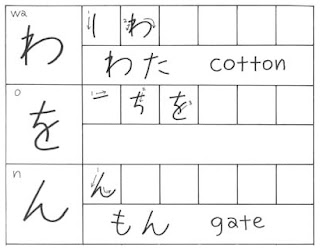 wa
わ
わ
わた cotton
o
を
を
n
ん
ん
もん gate